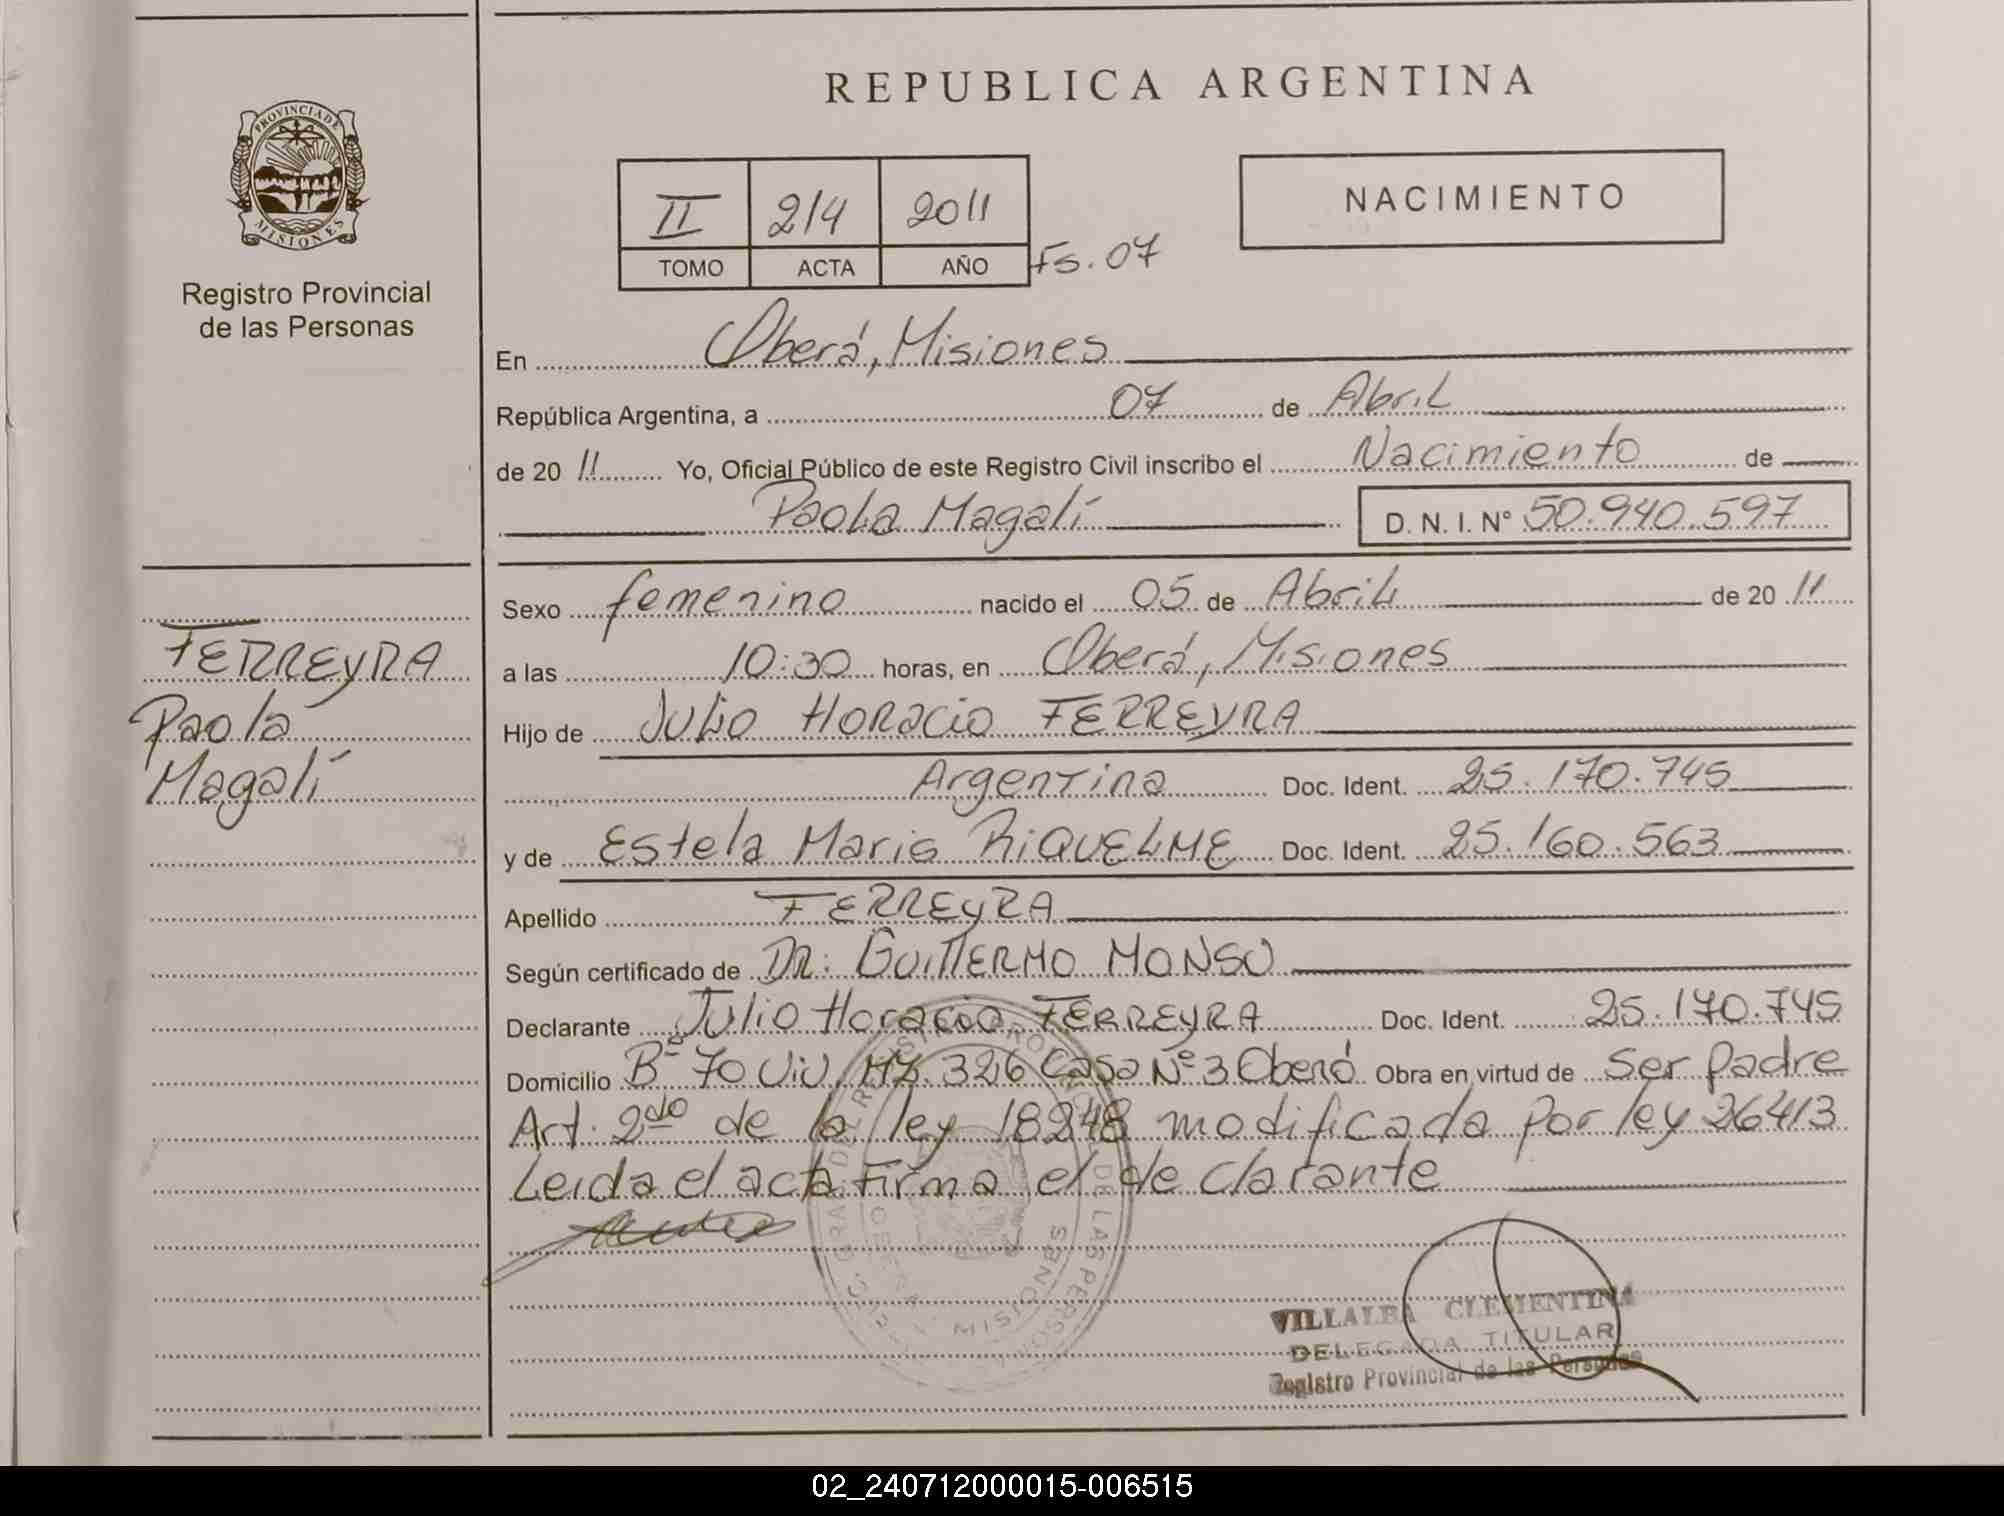 REPUBLICA ARGENTINA
PROVINCIA DE
MISIONES
Registro Provincial
de las Personas
II 214 2011
TOMO ACTA AÑO Fs. 07
NACIMIENTO
En Oberá, Misiones
República Argentina, a 07 de Abril
de 20 11 Yo, Oficial Público de este Registro Civil inscribo el Nacimiento de
Paola Magalí D. N. I. Nº 50.940.597
FERREYRA
Paola
Magalí
Sexo femenino nacido el 05 de Abril de 20 11
a las 10:30 horas, en Oberá, Misiones
Hijo de Julio Horacio FERREYRA
Argentina Doc. Ident. 25.170.745
y de Estela Maris RIQUELME Doc. Ident. 25.160.563
Apellido FERREYRA
Según certificado de DR: GUILLERMO MONSU
Declarante Julio Horacio FERREYRA Doc. Ident. 25.170.745
Domicilio Bº 70 Viv. MZ. 326 Casa Nº 3 Oberá Obra en virtud de ser padre
Art. 2do de la ley 18248 modificada por ley 26413
Leida el acta firma el declarante
MISIONES
DE LAS PERSONAS
VILLALBA CLEMENTINA
DELEGADA TITULAR
Registro Provincial de las Personas
02_240712000015-006515